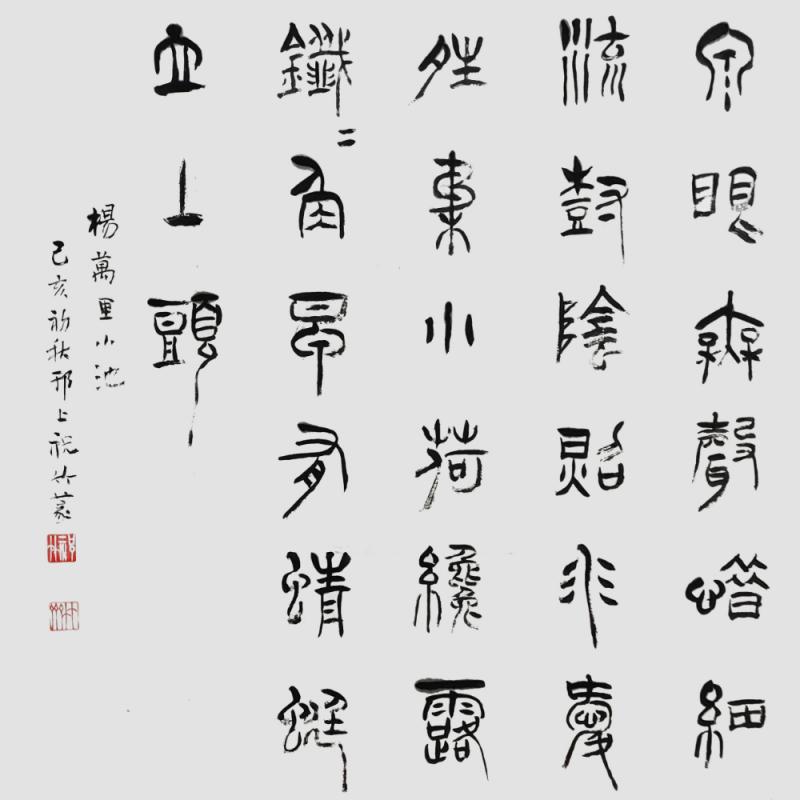 泉眼無聲惜細
流尌陰照水愛
夝柔小荷纔露
鑯二角早有蜻蜓
立上頭
楊萬里小池
己亥初秋邗上祝竹篆